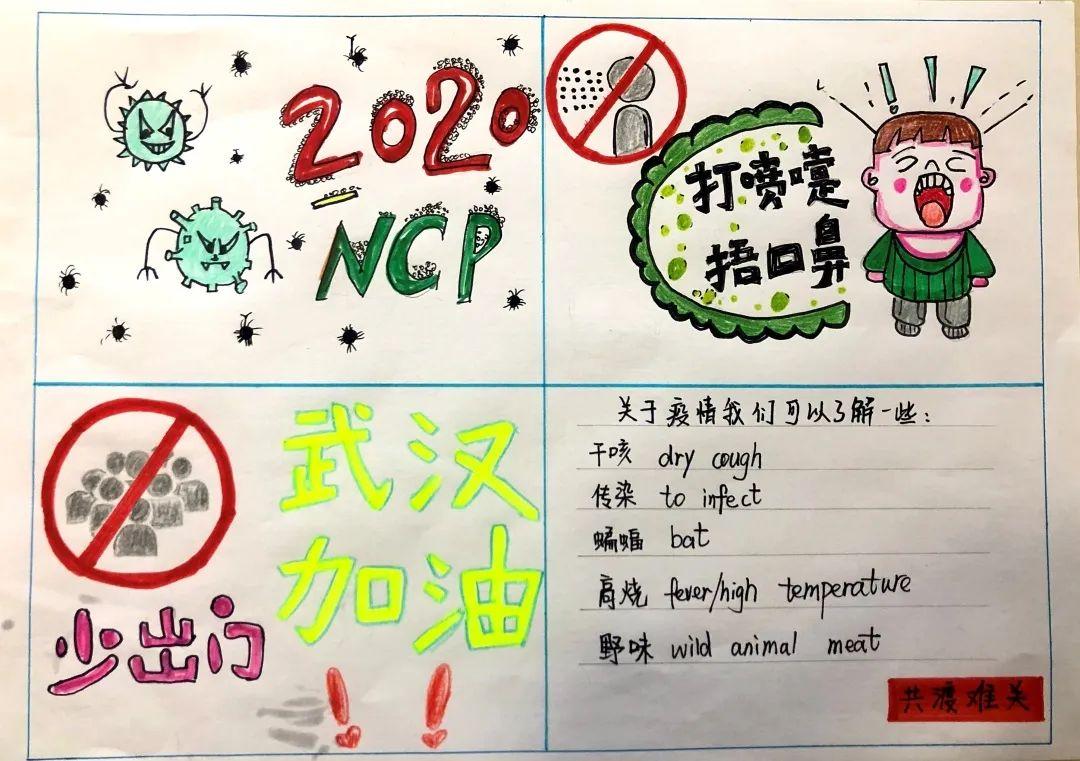 2020
NCP
打喷嚏
捂口鼻
少出门
武汉
加油
!!
关于疫情我们可以了解一些:
干咳 dry cough
传染 to infect
蝙蝠 bat
高烧 fever/high temperature
野味 wild animal meat
共渡难关